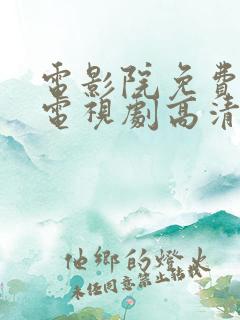 電影院免費
電視劇高清
他鄉的燈火
未经同意禁止转载